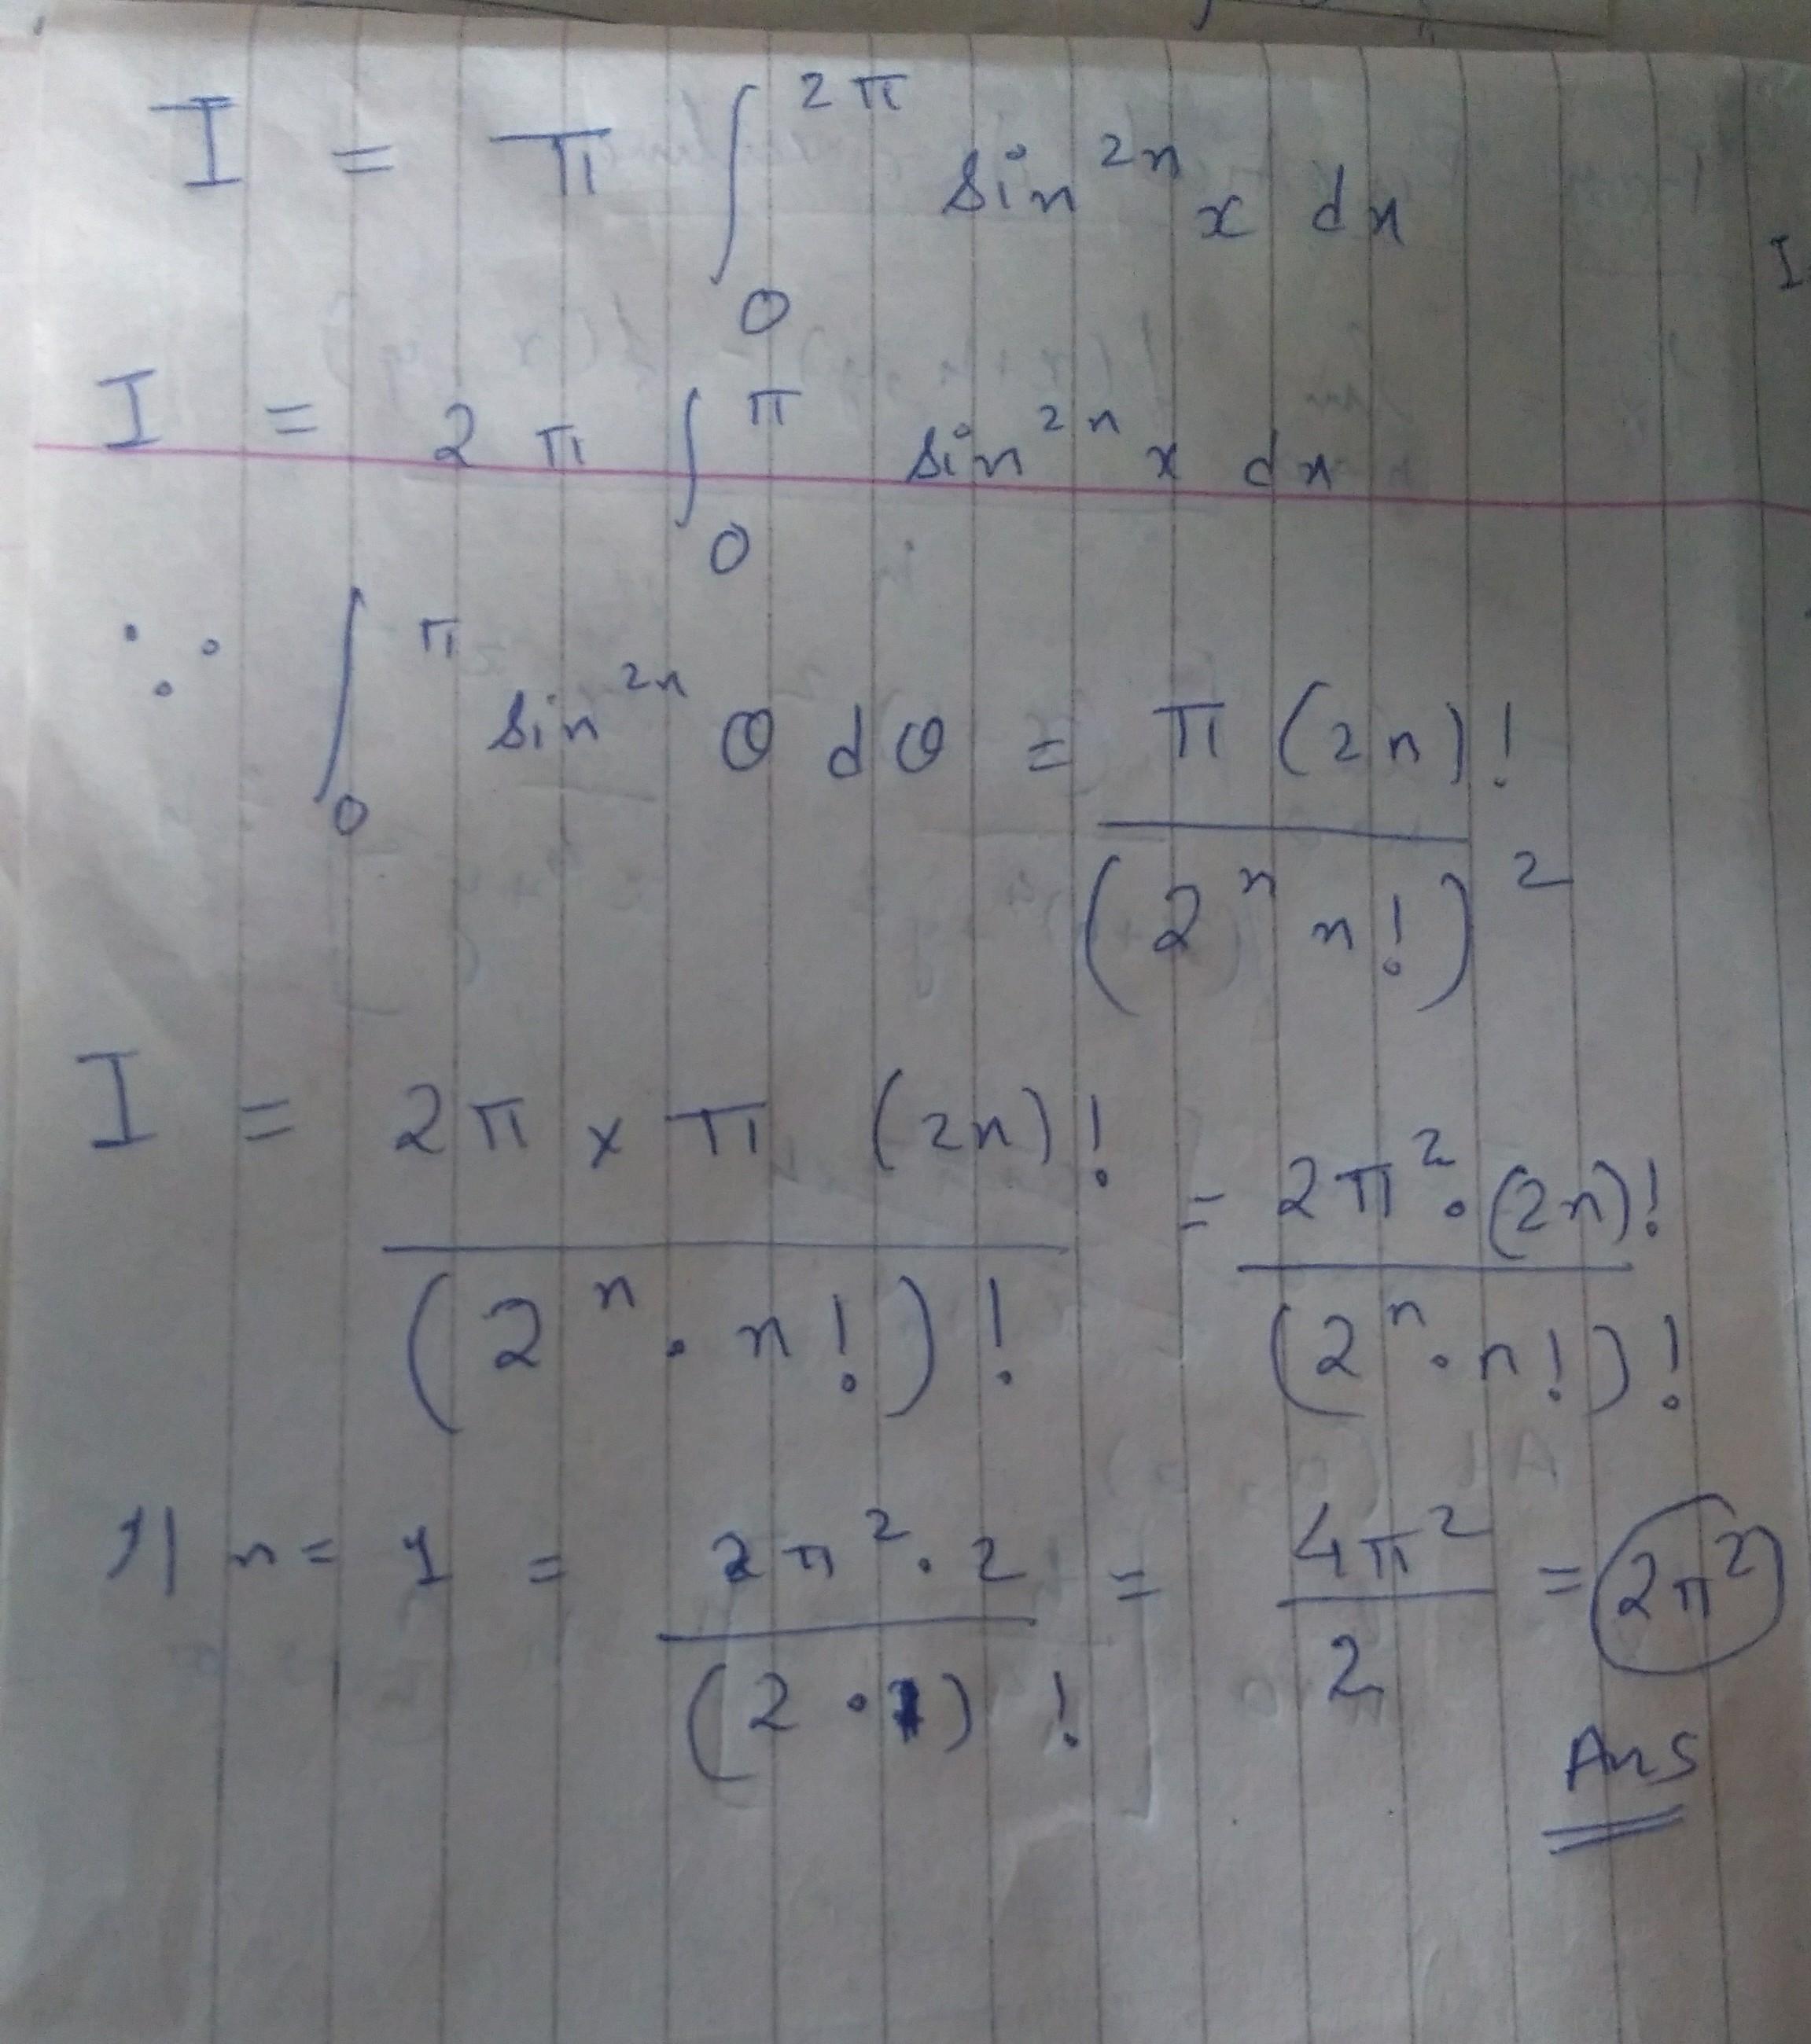 I = π ∫₀^{2π} sin^{2n} x dx
I = 2π ∫₀^{π} sin^{2n} x dx
∵ ∫₀^{π} sin^{2n} θ dθ = π (2n)! / (2^n n!)^2
I = 2π × π (2n)! / (2^n · n!)! = 2π^2 · (2n)! / (2^n · n!)!
If n = 1 = 2π^2 · 2 / (2 · 1)! = 4π^2 / 2 = 2π^2
Ans